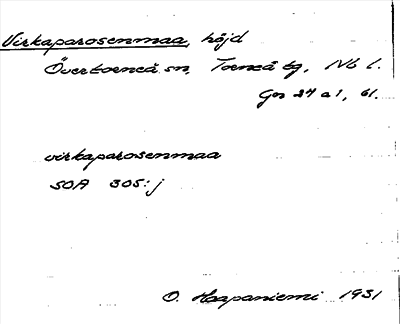 Virkaparosenmaa, höjd
Övertorneå sn, Torneå tg, Nb l.
Gn 24 a 1, 61.
virkaparosenmaa
SOA 305:j
O. Haapaniemi 1931